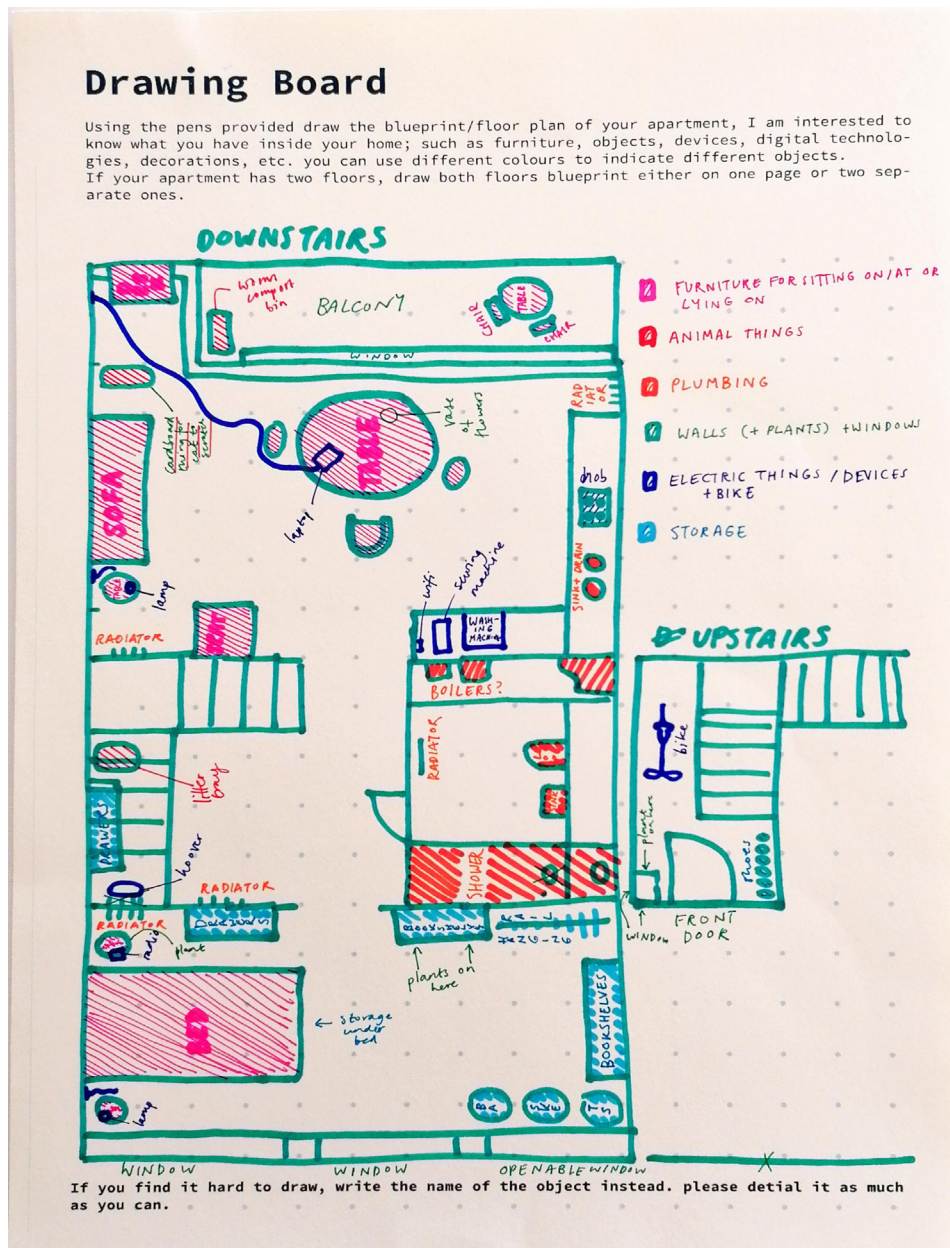 Drawing Board
Using the pens provided draw the blueprint/floor plan of your apartment, I am interested to
know what you have inside your home; such as furniture, objects, devices, digital technolo-
gies, decorations, etc. you can use different colours to indicate different objects.
If your apartment has two floors, draw both floors blueprint either on one page or two sep-
arate ones.
DOWNSTAIRS
worm
compost
bin
BALCONY
TABLE
CHAIR
CHAIR
WINDOW
FURNITURE FOR SITTING ON/AT OR
LYING ON
ANIMAL THINGS
PLUMBING
WALLS (+ PLANTS) + WINDOWS
ELECTRIC THINGS / DEVICES
+ BIKE
STORAGE
RAD
IAT
OR
cardboard
thing for
cat to
scratch
TABLE
vase
of
flowers
laptop
SOFA
hob
SINK + DRAIN
TABLE
lamp
wifi
sewing
machine
WASH-
ING
MACHINE
RADIATOR
BOILERS?
UPSTAIRS
RADIATOR
bike
litter
tray
DRAWERS
hoover
plant on here
shoes
SHOWER
RADIATOR
RADIATOR
radio
plant
DRAWERS
BOOKSHELF
RAIL
plants on
here
WINDOW
FRONT
DOOR
BED
← storage
under
bed
BOOKSHELVES
lamp
BA
SKE
TS
WINDOW
WINDOW
OPENABLE WINDOW
X
If you find it hard to draw, write the name of the object instead. please detial it as much
as you can.